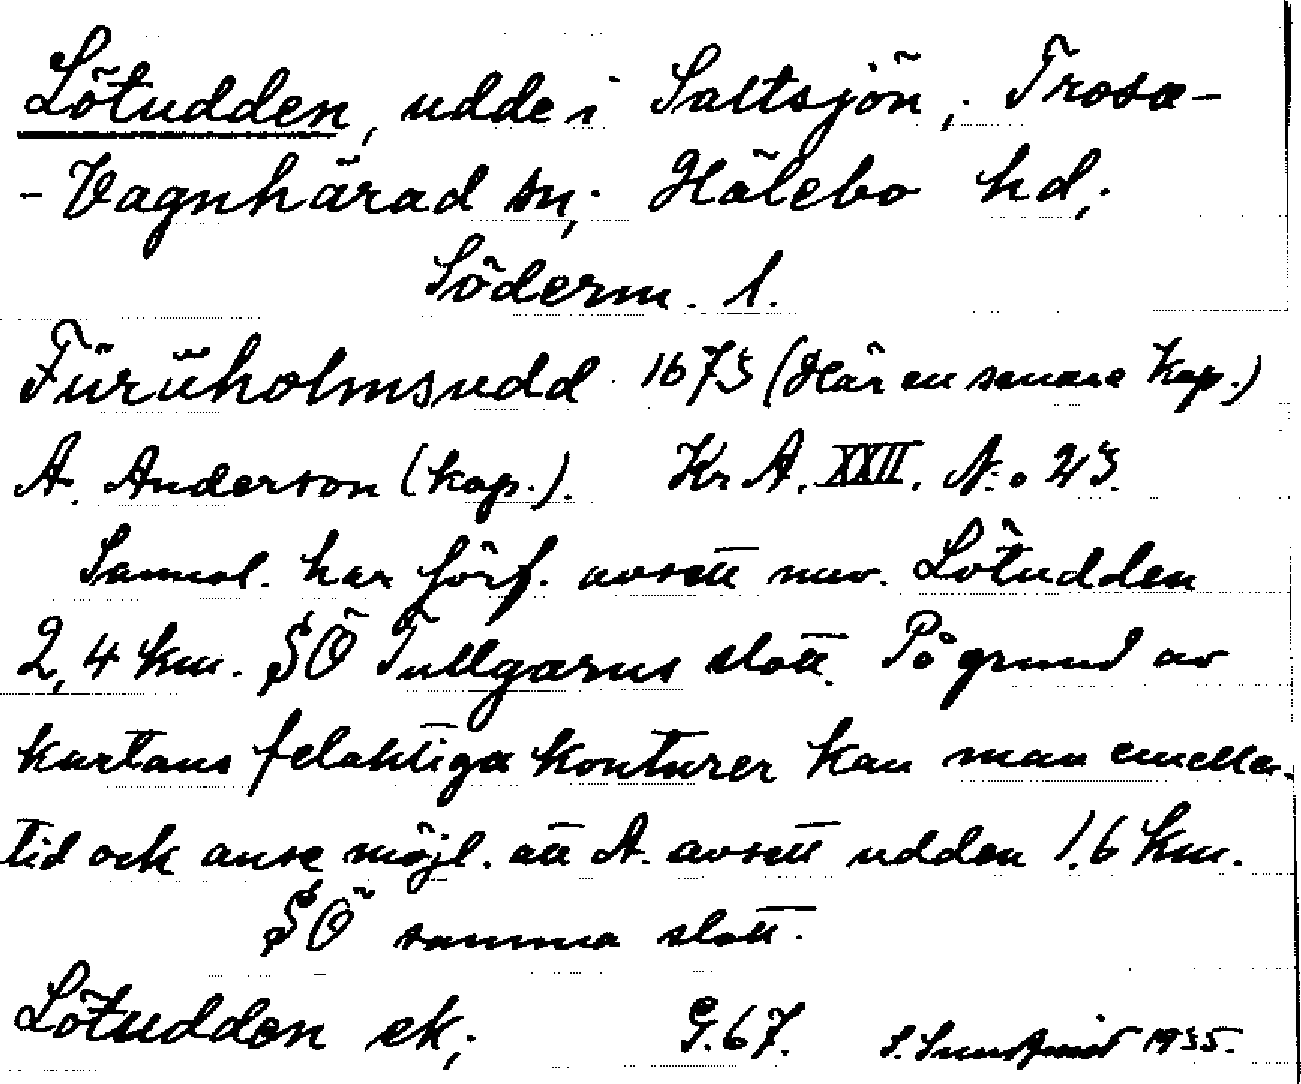 Lötudden, udde i Saltsjön, Trosa-
-Vagnhärad sn; Hölebo hd;
Söderm. l.
Füruholmsudd 1673 (Här en senare kop.)
A. Anderson (kop.). Kr A. XXII. N:o 23.
Sannol. har förf. avsett nuv. Lötudden
2,4 km. SÖ Tullgarns slott. På grund av
kartans felaktiga konturer kan man emeller-
tid ock anse möjl. att A. avsett udden 1,6 km.
SÖ samma slott.
Lötudden ek; G. 67. S. 1935.